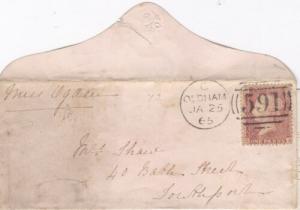 Miss Ogden
C
OLDHAM
JA 25
65
591
Mrs Shaw
40 Bath Street
Southport